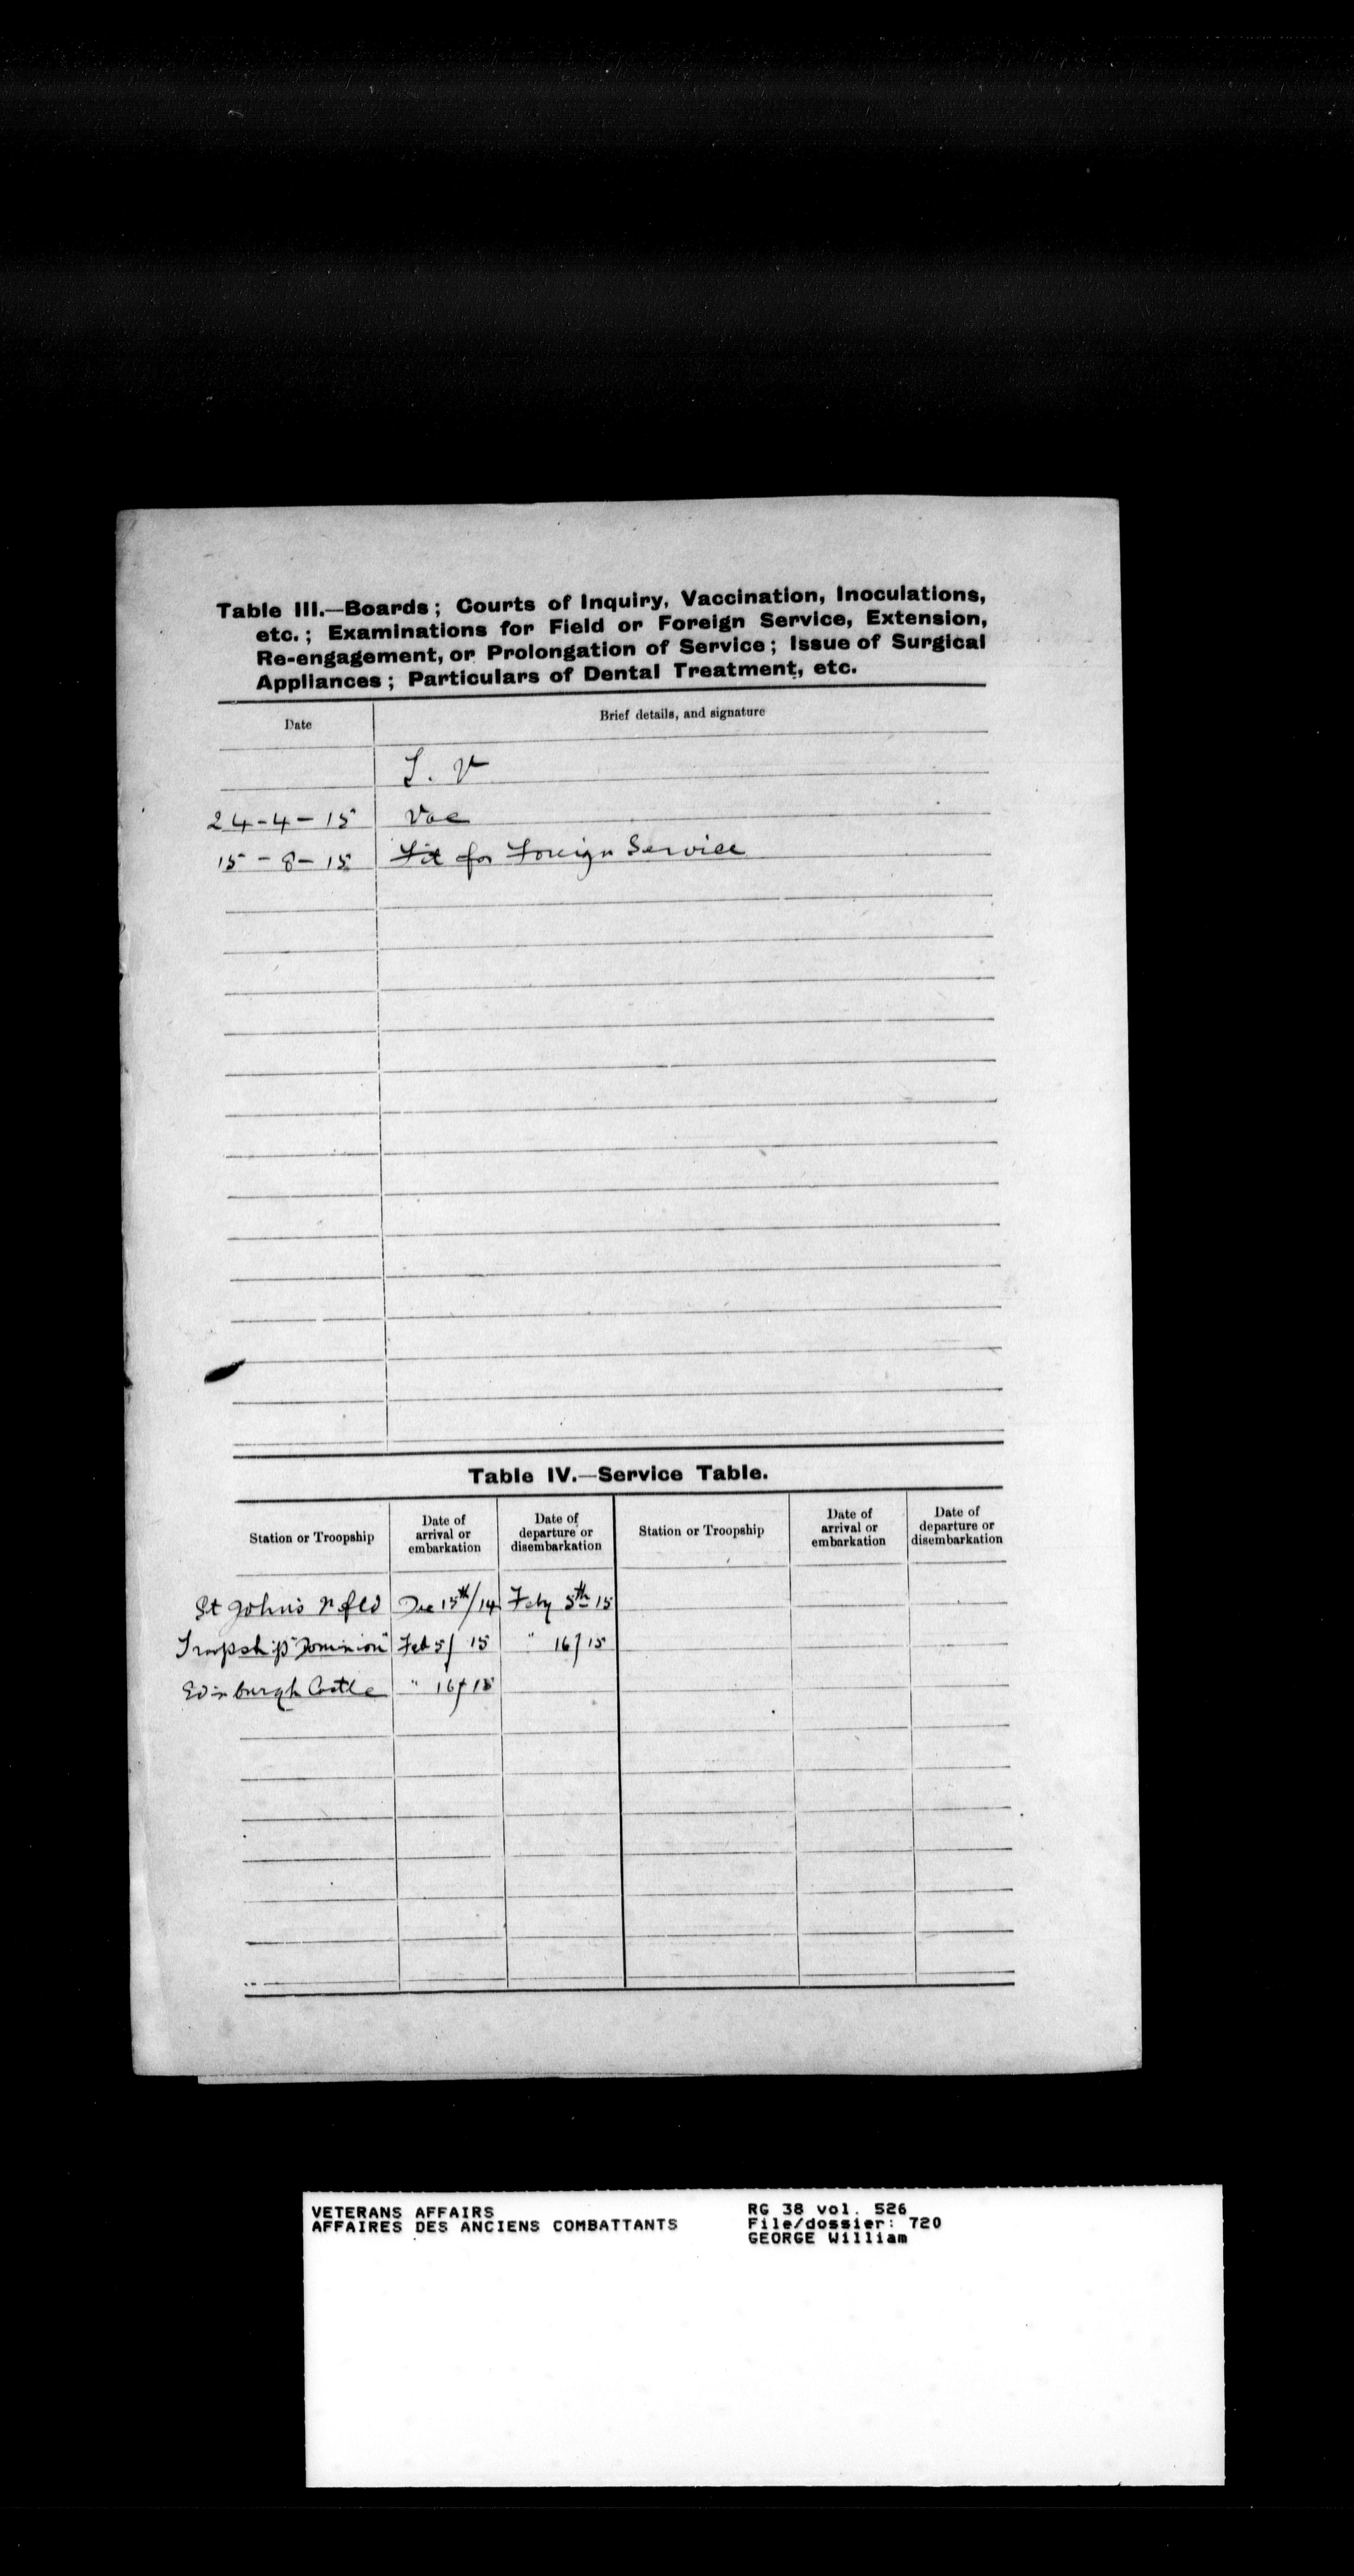 Table III.—Boards; Courts of Inquiry, Vaccination, Inoculations,
etc.; Examinations for Field or Foreign Service, Extension,
Re-engagement, or Prolongation of Service; Issue of Surgical
Appliances; Particulars of Dental Treatment, etc.
Date Brief details, and signature
T. V
24-4-15 Vac
15-8-15 Fit for Foreign Service
Table IV.—Service Table.
Station or Troopship Date of arrival or embarkation Date of departure or disembarkation Station or Troopship Date of arrival or embarkation Date of departure or disembarkation
St John's Nfld Dec 15th/14 Feby 5th 15
Troopship "Dominion" Feb 5/ 15 " 16/15
Edinburgh Castle " 16/15
VETERANS AFFAIRS RG 38 vol. 526
AFFAIRES DES ANCIENS COMBATTANTS File/dossier: 720
GEORGE William